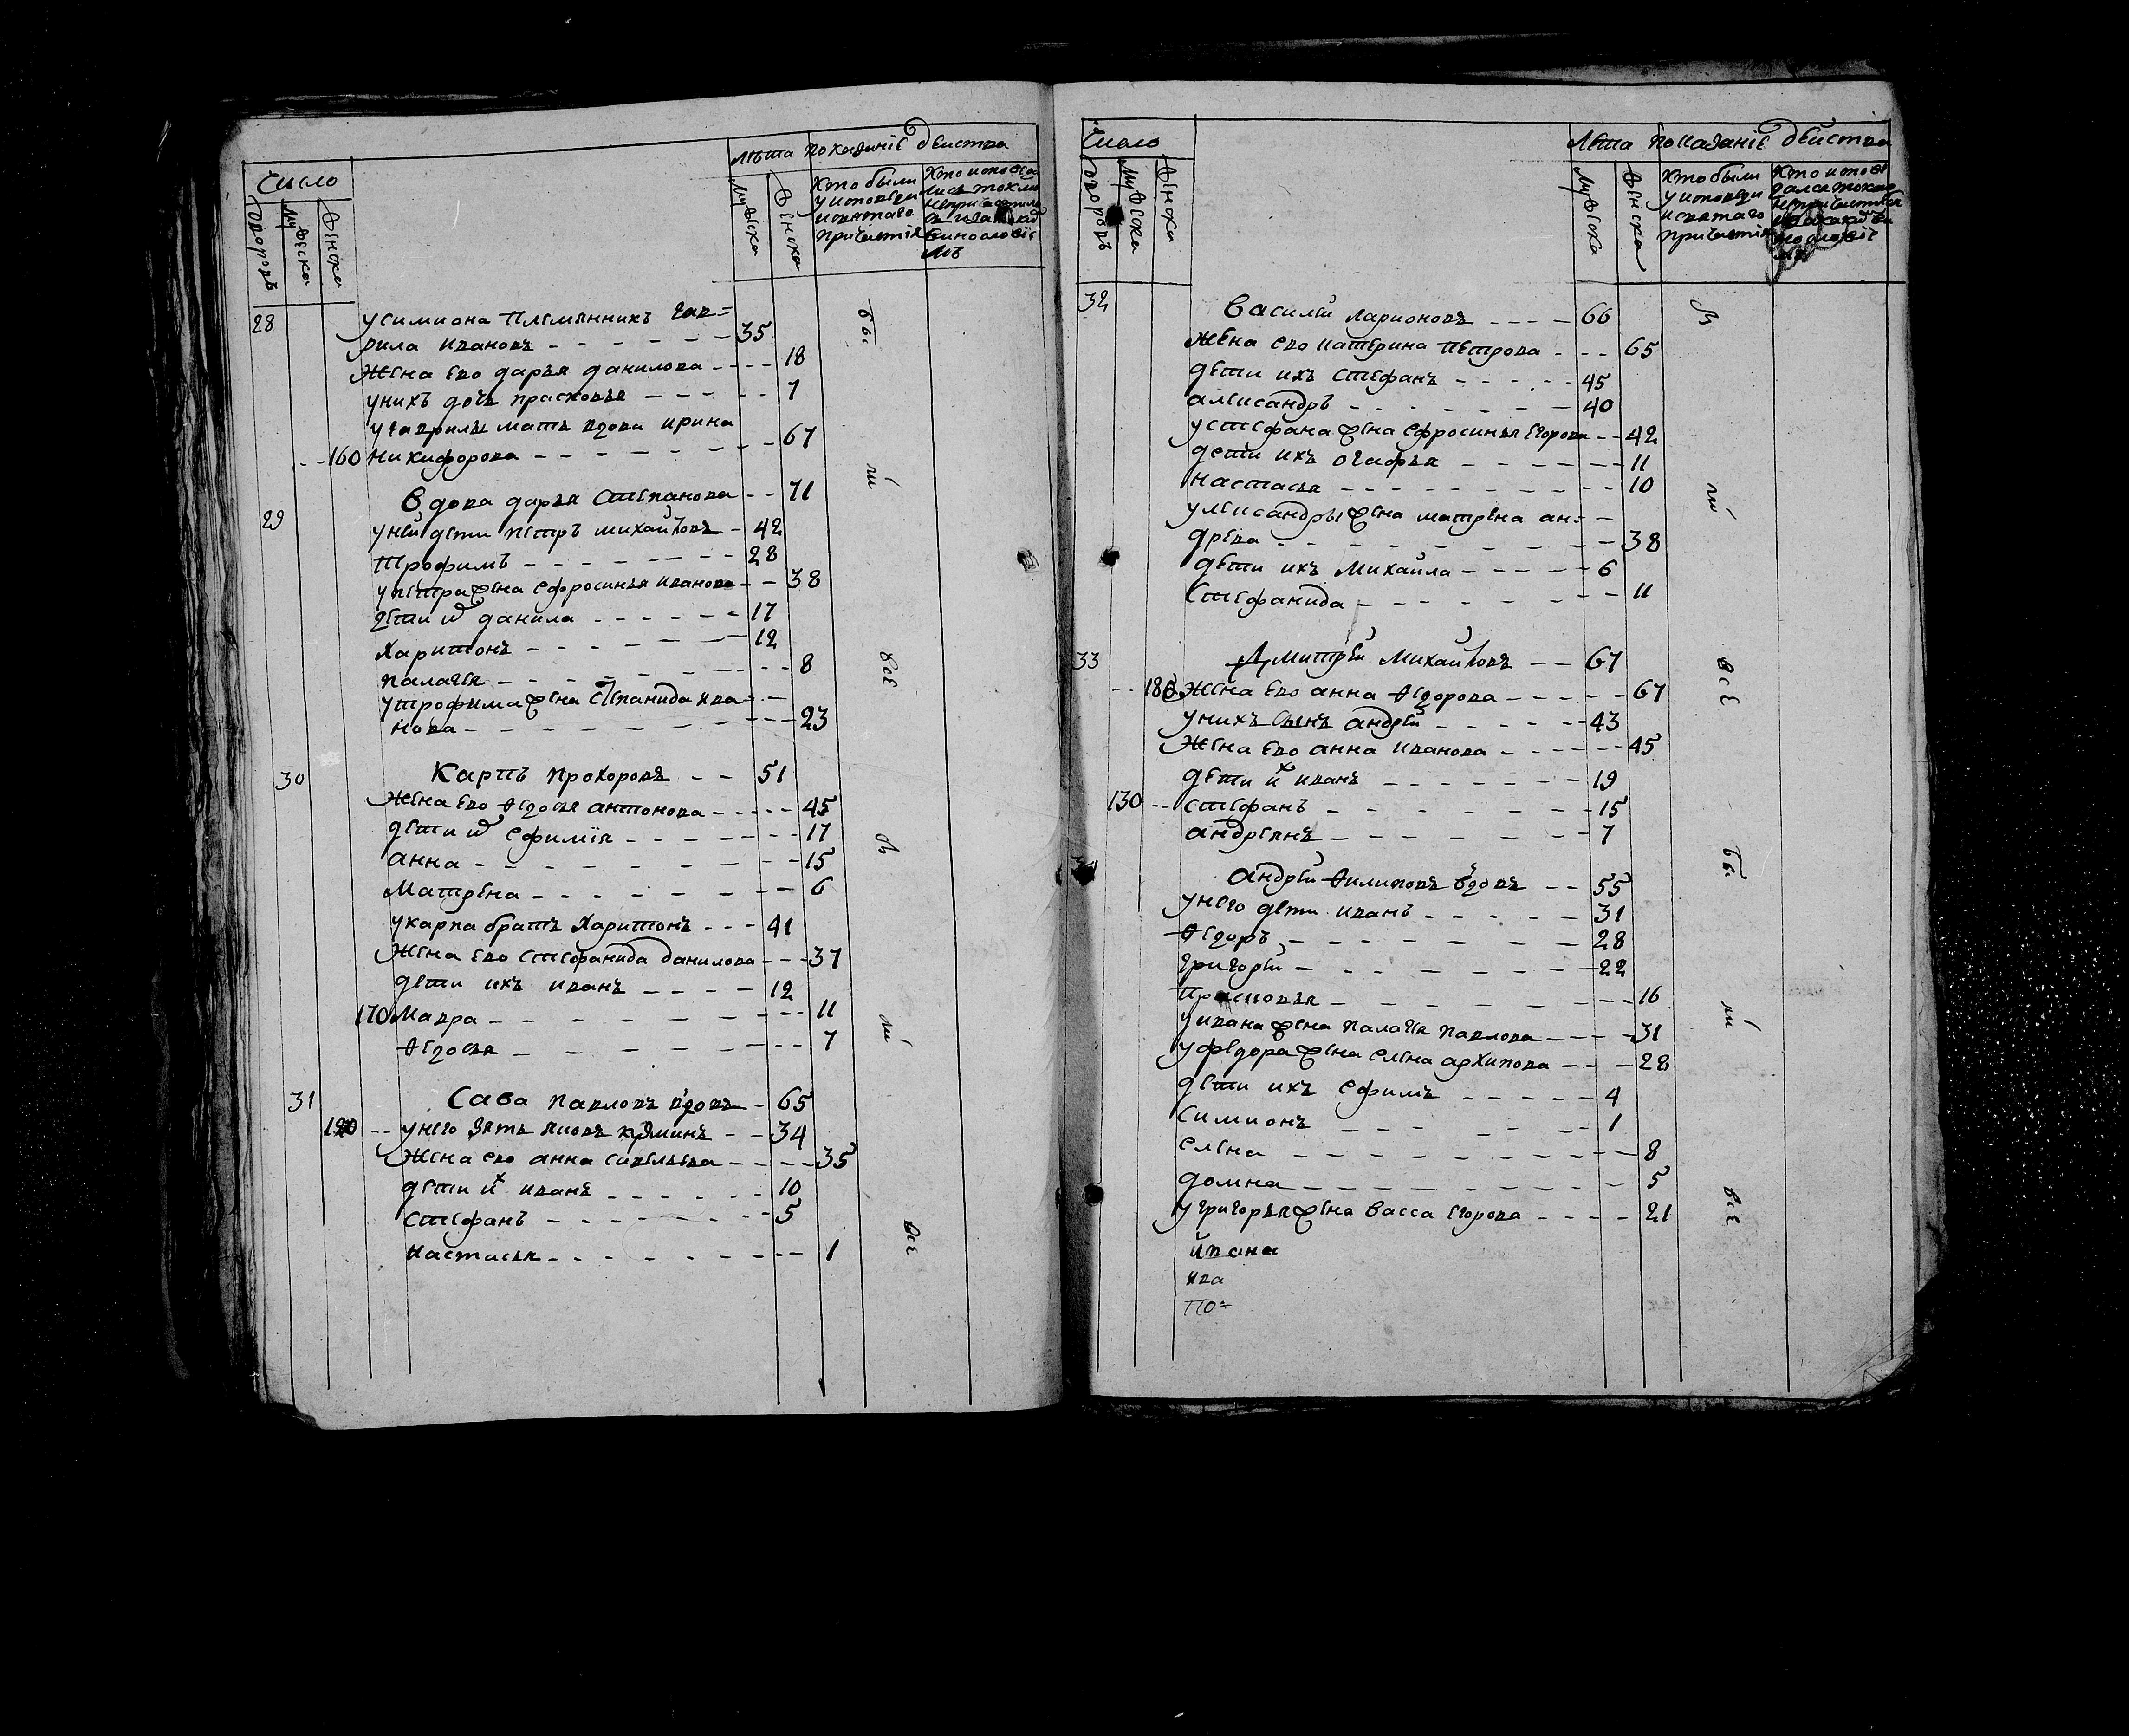 Число
Лѣта показанїе действа
дворовъ
мужеска
женска
мужеска
женска
Кто были
у исповеди
и святаго
причастїя
28
у симиона племянникъ гав=
рила ивановъ 35
жена ево дарья данилова 18
у нихъ дочь прасковья 7
у гаврилы мать вдова ирина
160 никифорова 67
29
вдова дарья степанова 71
у ней дети петръ михайловъ 42
трофимъ 28
у петра жена ефросинья иванова 38
дети их данила 17
харитонъ 12
палагея 8
у трофима жена степанида ива=
нова 23
30
карпъ прохоровъ 51
жена ево федосья антонова 45
дети их ефимїя 17
анна 15
матрена 6
у карпа братъ харитонъ 41
жена ево стефанида данилова 37
дети ихъ иванъ 12
170 мавра 11
федосья 7
31
сава павловъ вдовъ 65
у него зять яковъ кузминъ 34
жена ево анна савельева 35
дети их иванъ 10
стефанъ 5
настасья 1
бы
ли
все
бы
ли
все
Число
Лѣта показанїе действа
дворовъ
мужеска
женска
мужеска
женска
Кто были
у исповеди
и святаго
причастїя
32
василей ларионовъ 66
жена ево катерина петрова 65
дети ихъ стефанъ 45
александръ 40
у стефана жена ефросинья егорова 42
дети ихъ огафья 11
настасья 10
у лександры жена матрена ан=
древа 38
дети ихъ михаила 6
стефанида 11
33
дмитрей михайловъ 67
180 жена ево анна федорова 67
у нихъ сынъ андрей 43
жена ево анна иванова 45
дети их иванъ 19
130 стефанъ 15
андреянъ 7
андрей филиповъ вдовъ 55
у него дети иванъ 31
федоръ 28
григорей 22
прасковья 16
у ивана жена палагея павлова 31
у федора жена елена архипова 28
дети ихъ ефимъ 4
симионъ 1
елена 8
домна 5
у григорья жена васса егорова 21
ивана
ива
по=
бы
ли
все
бы
ли
все